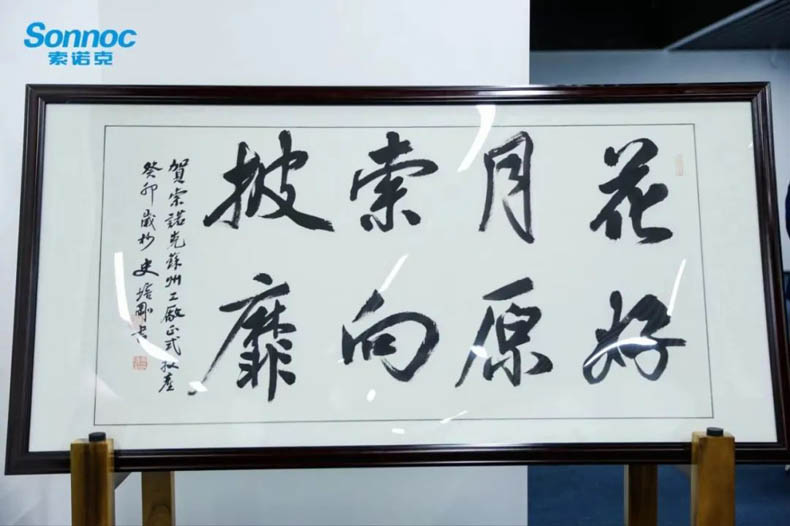 Sonnoc
索诺克
花好
月原
索向
披靡
賀索諾克蘇州工廠正式投產
癸卯歲杪 史培剛书